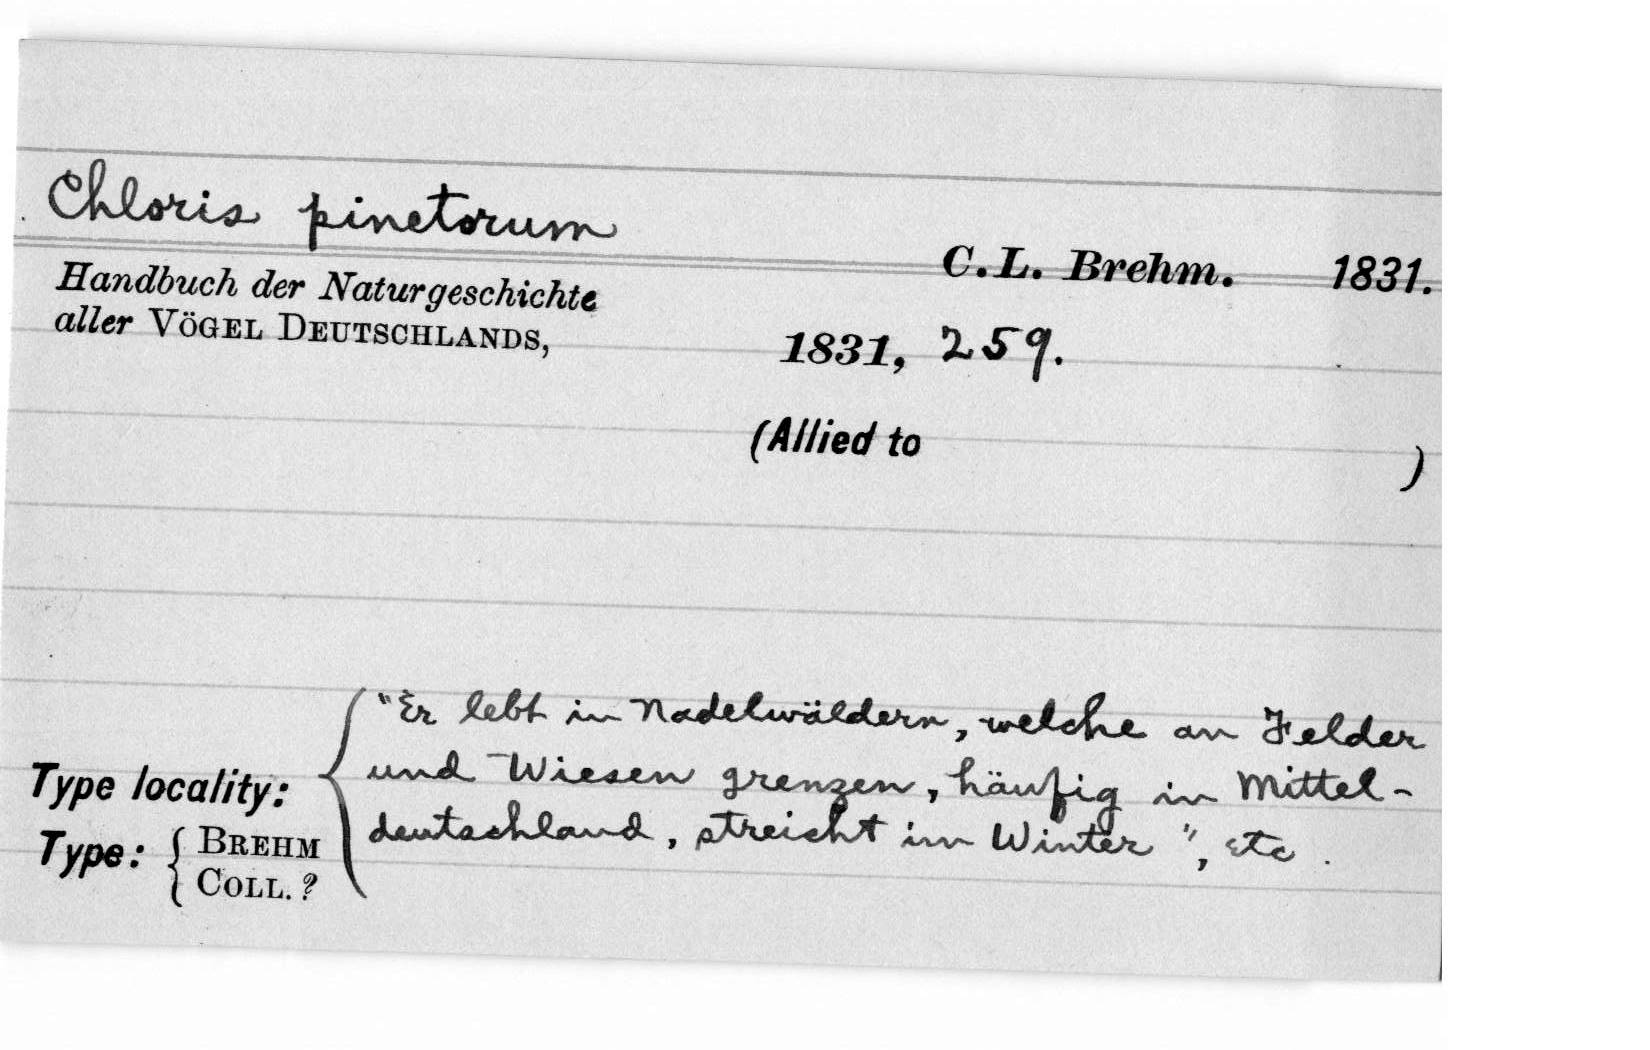 Chloris pinetorum
C. L. Brehm. 1831.
Handbuch der Naturgeschichte
aller VÖGEL DEUTSCHLANDS,
1831, 259.
(Allied to )
"Er lebt in Nadelwäldern, welche an Felder
und Wiesen grenzen, häufig in Mittel-
deutschland, streicht im Winter", etc.
Type locality:
Type: { BREHM
COLL. ?